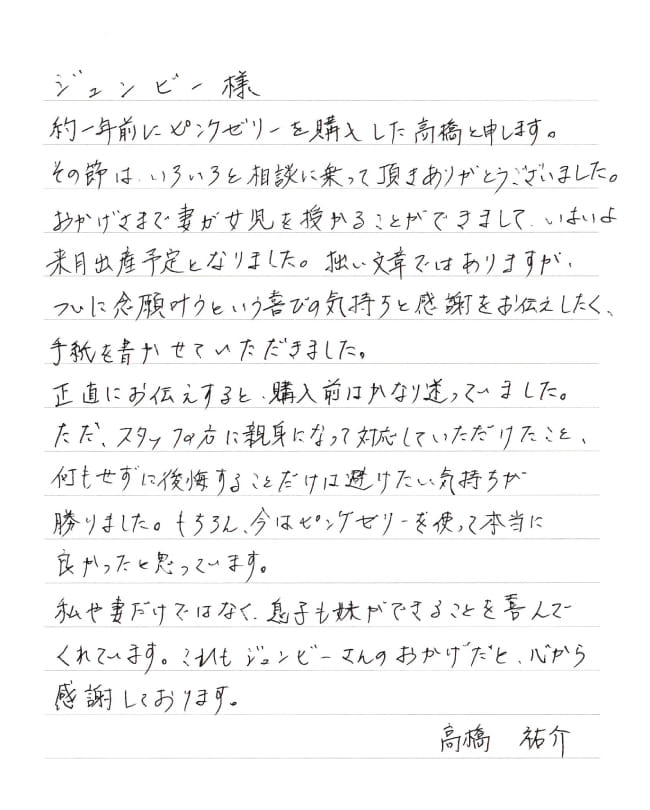 ジュンビー様
約一年前にピンクゼリーを購入した高橋と申します。
その節は、いろいろと相談に乗って頂きありがとうございました。
おかげさまで妻が女児を授かることができまして、いよいよ
来月出産予定となりました。拙い文章ではありますが、
ついに念願叶うという喜びの気持ちと感謝をお伝えしたく、
手紙を書かせていただきました。
正直にお伝えすると、購入前はかなり迷っていました。
ただ、スタッフの方に親身になって対応していただけたこと、
何もせずに後悔することだけは避けたい気持ちが
勝りました。もちろん、今はピンクゼリーを使って本当に
良かったと思っています。
私や妻だけではなく、息子も妹ができることを喜んで
くれています。これもジュンビーさんのおかげだと、心から
感謝しております。
高橋 祐介